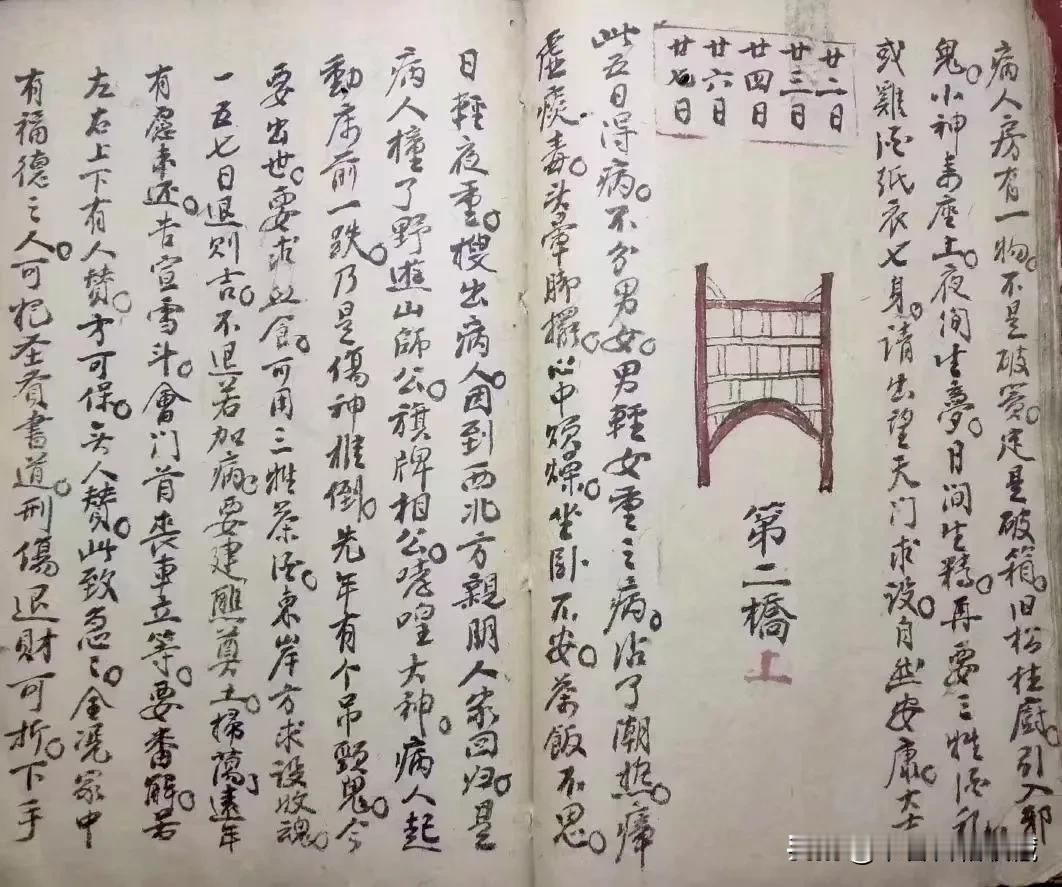 病人房有一物。不是破瓮定是破箱。旧松柱廚。引入邪
鬼。小神来座上。夜间生夢。日间生轉。再要三牲酒礼
或雞酒纸衣七身。请出望天门求设。自然安康。大士
廿二日
廿三日
廿四日
廿六日
廿七日
第二橋上
此五日得病。不分男女。男輕女重之病。沾了潮热。瘴
虚痰毒。头暈脚擺。心中煩燥。坐卧不安。茶飯不思。
日輕夜重。搜出病人。因到西北方親朋人家回归。是
病人橦了野遊山師公。旗牌相公。哮喤大神。病人起
動床前一跌。乃是傷神推倒。先年有个吊頸鬼。今
要出世。要求血食。可用三牲茶酒。東岸方求设收魂。
一五七日退則吉。不退若加病。要建醮奠土。掃蕩遠年
有愿未还。告宣雪斗。會门首丧車立等。要番解。若
左右上下有人替。方可保。无人替。此致急之。全凭家中
有福德之人。可把圣賢書道。刑傷退财可折。下手